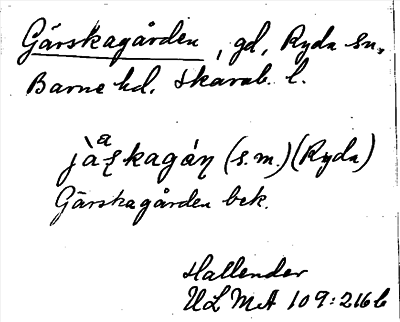 Gärskagården, gd, Ryda sn,
Barne hd. Skarab. l.
(s.m.) (Ryda)
Gärskagården bek.
Hallender
ULMA 109:216 b